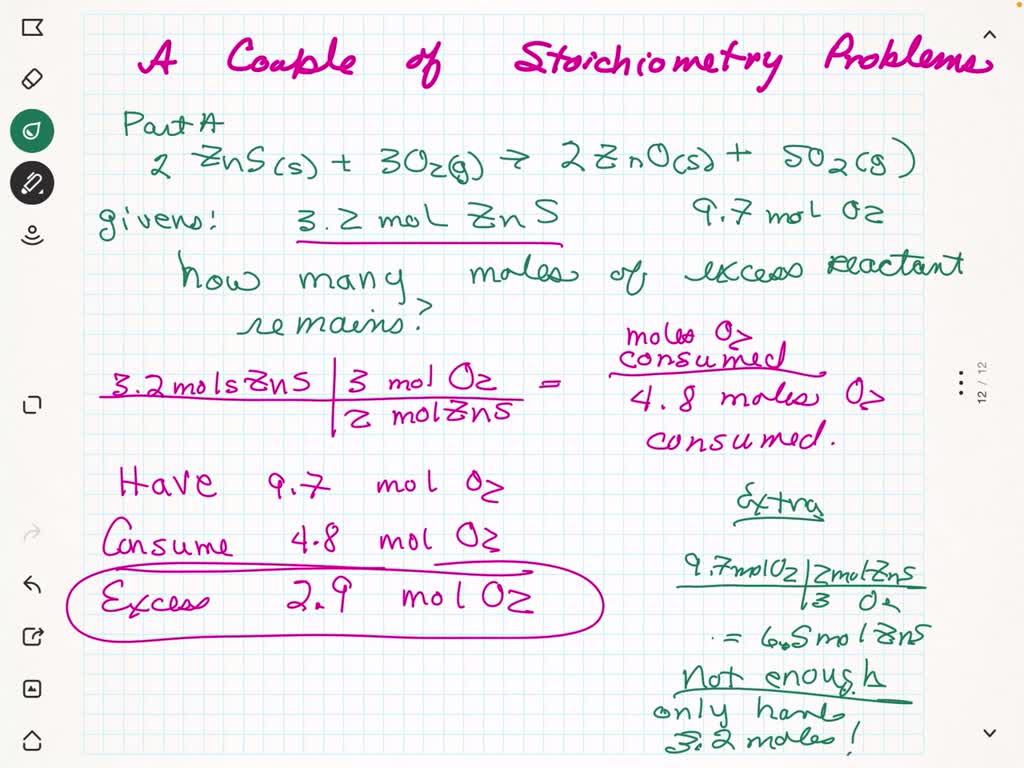 A Couple of Stoichiometry Problems
Part A
2 ZnS(s) + 3O2(g) → 2ZnO(s) + SO2(g)
givens! 3.2 mol ZnS 9.7 mol O2
how many moles of excess reactant
remains?
3.2 mols ZnS | 3 mol O2 = moles O2 consumed
2 mol ZnS
4.8 moles O2
consumed.
Have 9.7 mol O2
Consume 4.8 mol O2
Excess 2.9 mol O2
Extra
9.7 mol O2 | 2 mol ZnS
3 O2
= 6.5 mol ZnS
Not enough
only have
3.2 moles!
12 / 12